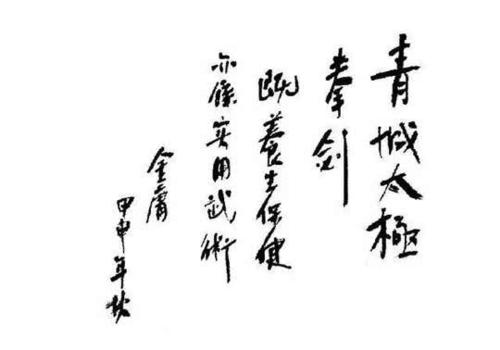 青城太極
拳劍
既養生保健
亦係实用武術
金庸
甲申年秋